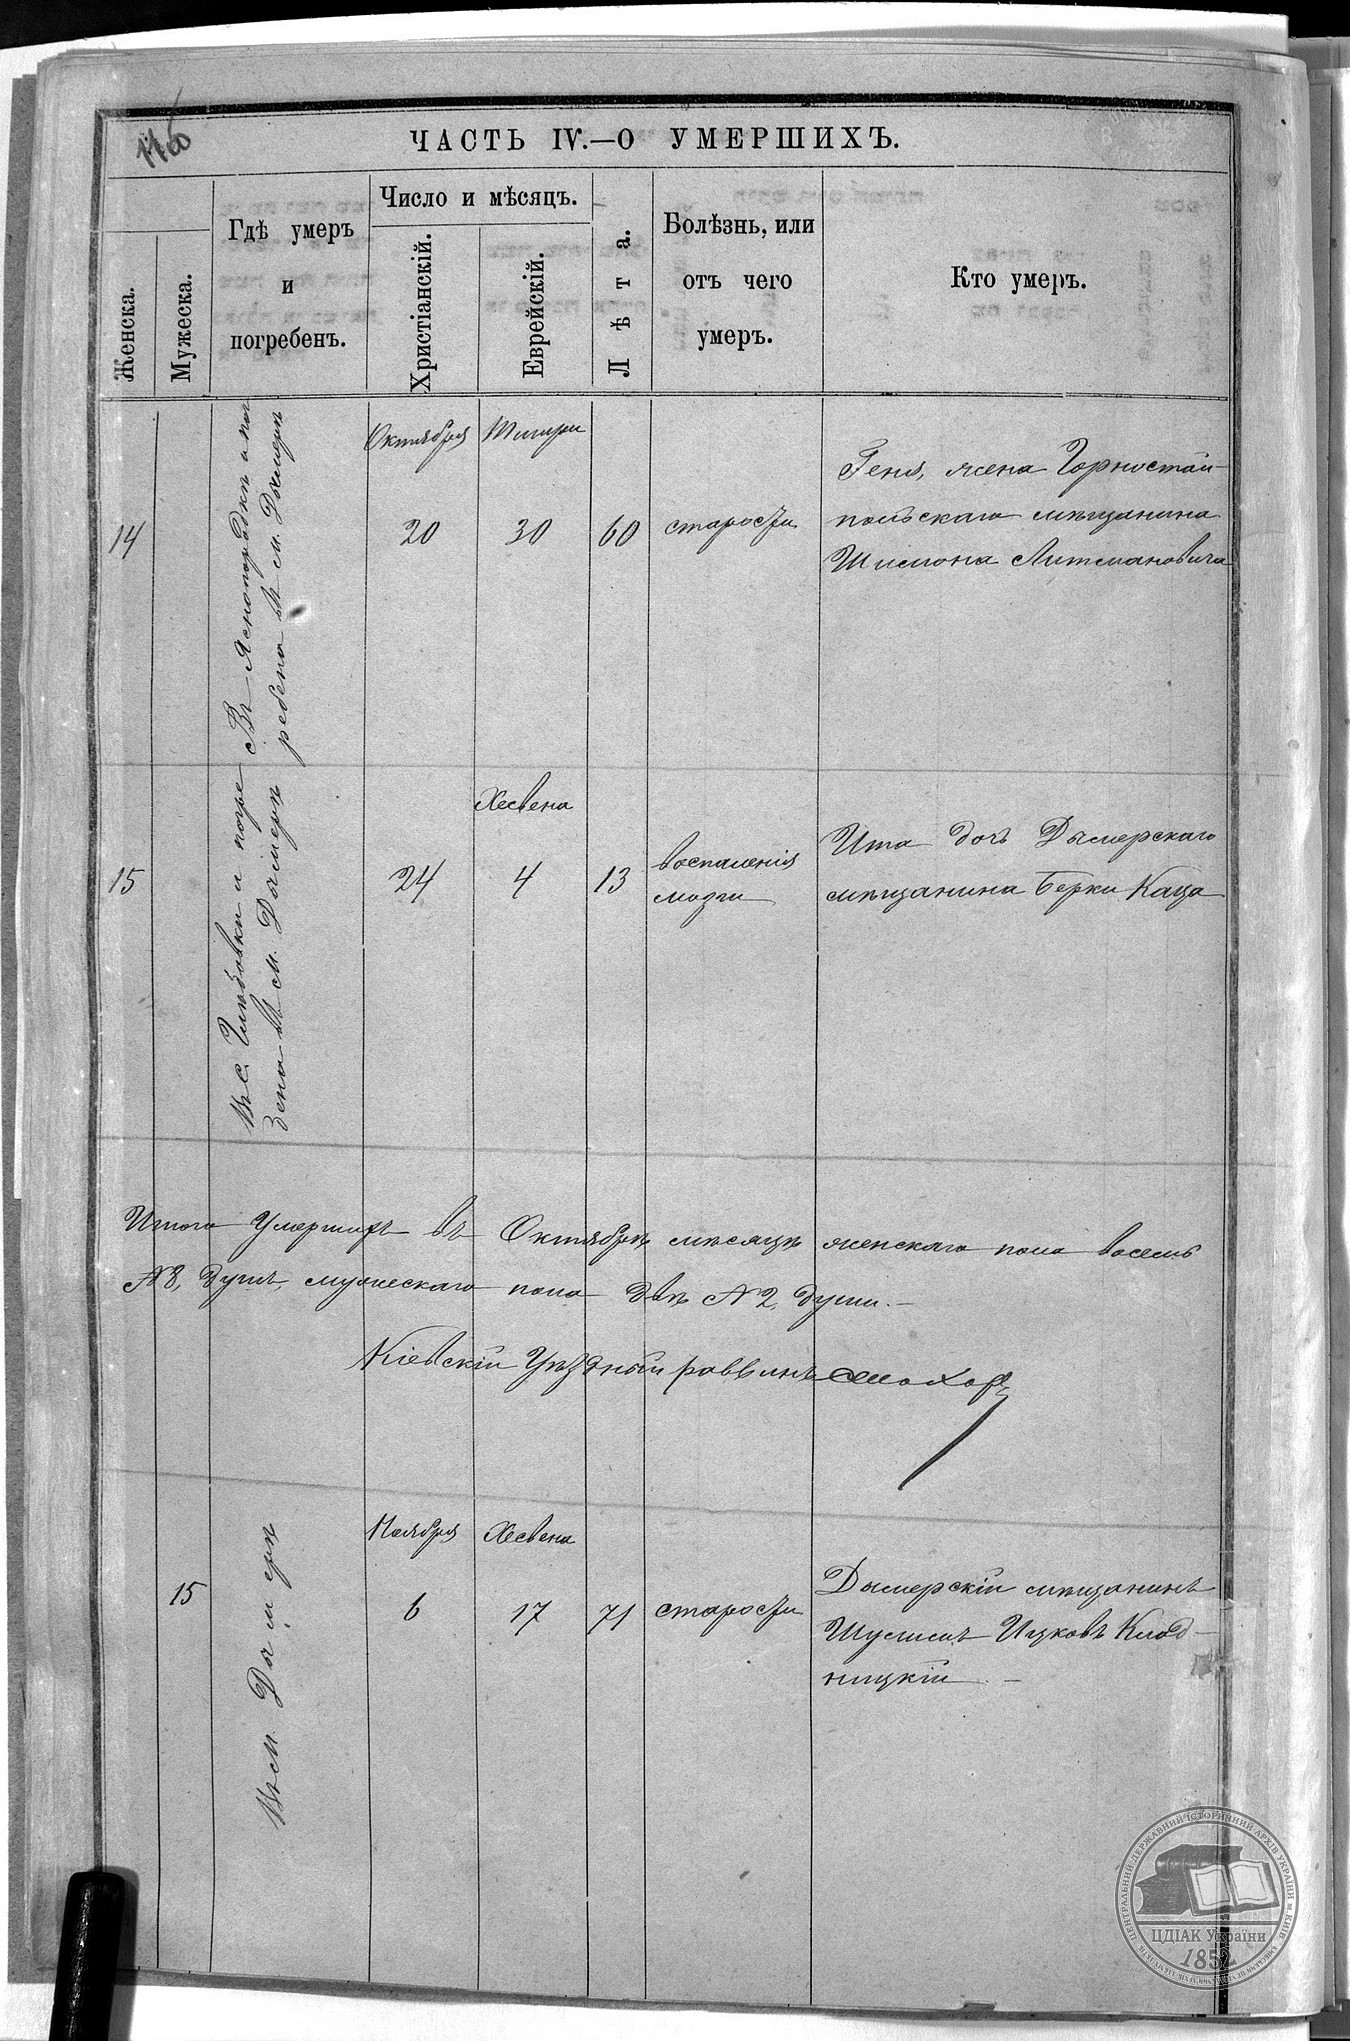 ЧАСТЬ IV.—О УМЕРШИХЪ.
Женска.
Мужеска.
Гдѣ умеръ
и
погребенъ.
Число и мѣсяцъ.
Христіанскій.
Еврейскій.
Лѣта.
Болѣзнь, или
отъ чего
умеръ.
Кто умеръ.
14
Въ Яснопородкѣ и пог
ребена въ м. Дымерѣ
Октября
20
Тишри
30
60
старости
Геня, жена Горностай-
польскаго мѣщанина
Шимона Литмановича
15
и погре
зена въ м. Дымерѣ
24
Хесвена
4
13
воспаленія
мозги
Ита дочь Дымерскаго
мѣщанина Берки Каца
Итого умершихъ въ Октябрѣ мѣсяцѣ женскаго пола восемь
№ 8, душъ, мужескаго пола двѣ № 2, души.—
Кіевскій Уѣздный раввинъ
15
Въ м. Дымерѣ
Ноября
6
Хесвена
17
71
старости
Дымерскій мѣщанинъ
Шулимъ Ицковъ Клод-
ницкій. —
ЦЕНТРАЛЬНИЙ ДЕРЖАВНИЙ ІСТОРИЧНИЙ АРХІВ УКРАЇНИ м.КИЇВ
ЦДІАК України
1852